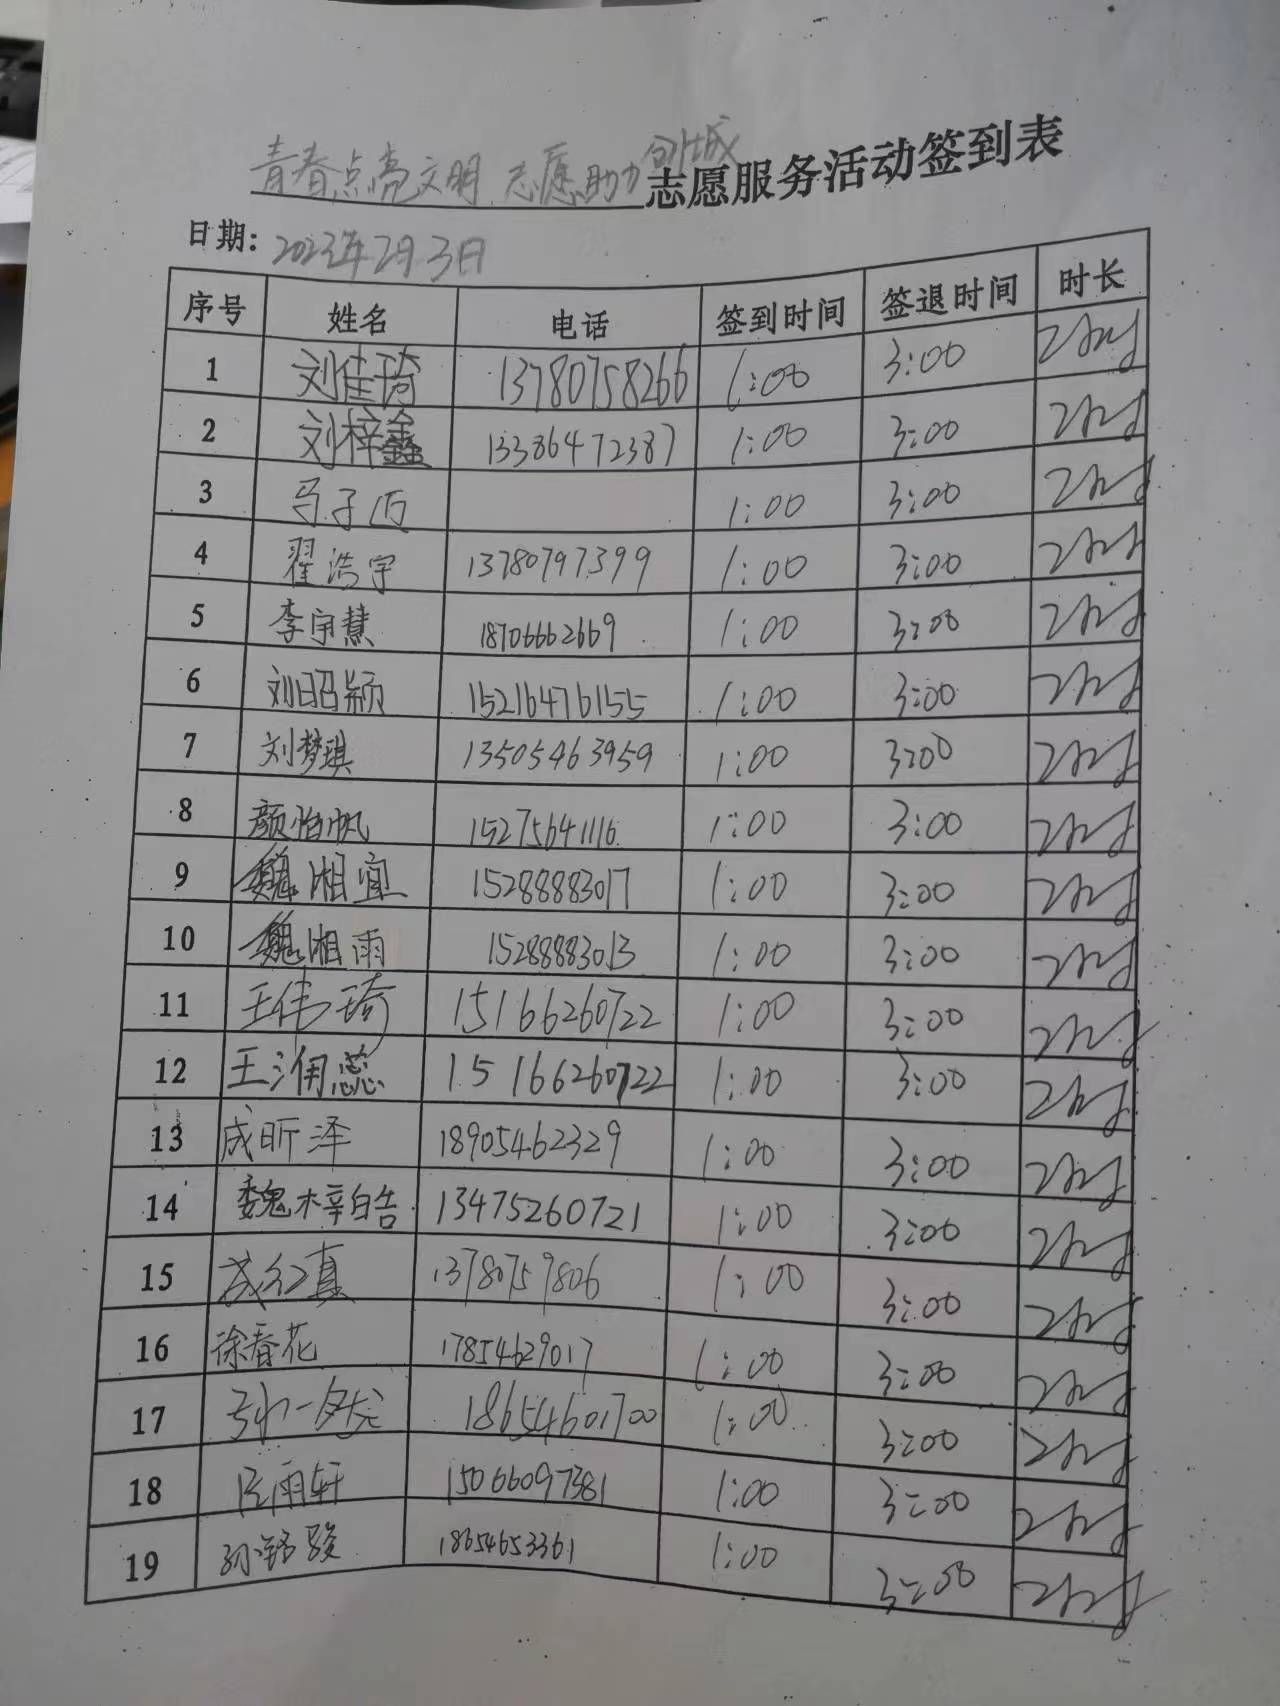 青春点亮文明 志愿助力创城 志愿服务活动签到表
日期: 2023年2月3日
序号 姓名 电话 签到时间 签退时间 时长
1 刘佳琦 13780758266 1:00 3:00 2小时
2 刘梓鑫 13386472387 1:00 3:00 2小时
3 马子 1:00 3:00 2小时
4 翟浩宇 13780797399 1:00 3:00 2小时
5 李宇慧 18706662669 1:00 3:00 2小时
6 刘昭颖 15216476155 1:00 3:00 2小时
7 刘梦琪 13505463959 1:00 3:00 2小时
8 颜怡帆 15275641116 1:00 3:00 2小时
9 魏湘宜 15288883017 1:00 3:00 2小时
10 魏湘雨 15288883013 1:00 3:00 2小时
11 王伟琦 15166260722 1:00 3:00 2小时
12 王润蕊 15166260722 1:00 3:00 2小时
13 成昕泽 18905462329 1:00 3:00 2小时
14 魏梓皓 13475260721 1:00 3:00 2小时
15 成红真 13780759806 1:00 3:00 2小时
16 徐春花 17854629017 1:00 3:00 2小时
17 一 18654601700 1:00 3:00 2小时
18 雨轩 15066097381 1:00 3:00 2小时
19 孙铭骏 18654653361 1:00 3:00 2小时